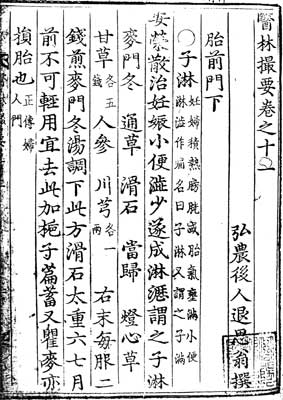 醫林撮要卷之十一
弘農後人退思翁撰
胎前門下
〇子淋 妊婦積熱膀胱或胎氣壅滿小便
淋澁作痛名曰子淋又謂之子滿
安榮散治妊娠小便澁少遂成淋瀝謂之子淋
麥門冬 通草 滑石 當歸 燈心草
甘草各五錢 人參 川芎各一兩 右末每服二
錢煎麥門冬湯調下此方滑石太重六七月
前不可輕用宜去此加梔子萹蓄又瞿麥亦
損胎也正傳婦人門